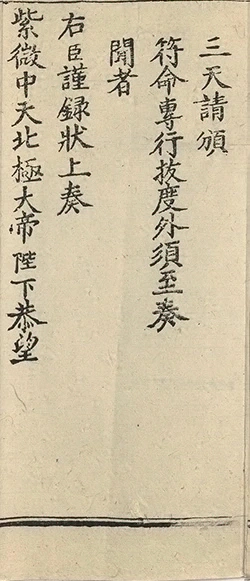 三天請頒
符命專行拔度外須至奏
聞者
右臣謹録狀上奏
紫微中天北極大帝陛下恭望